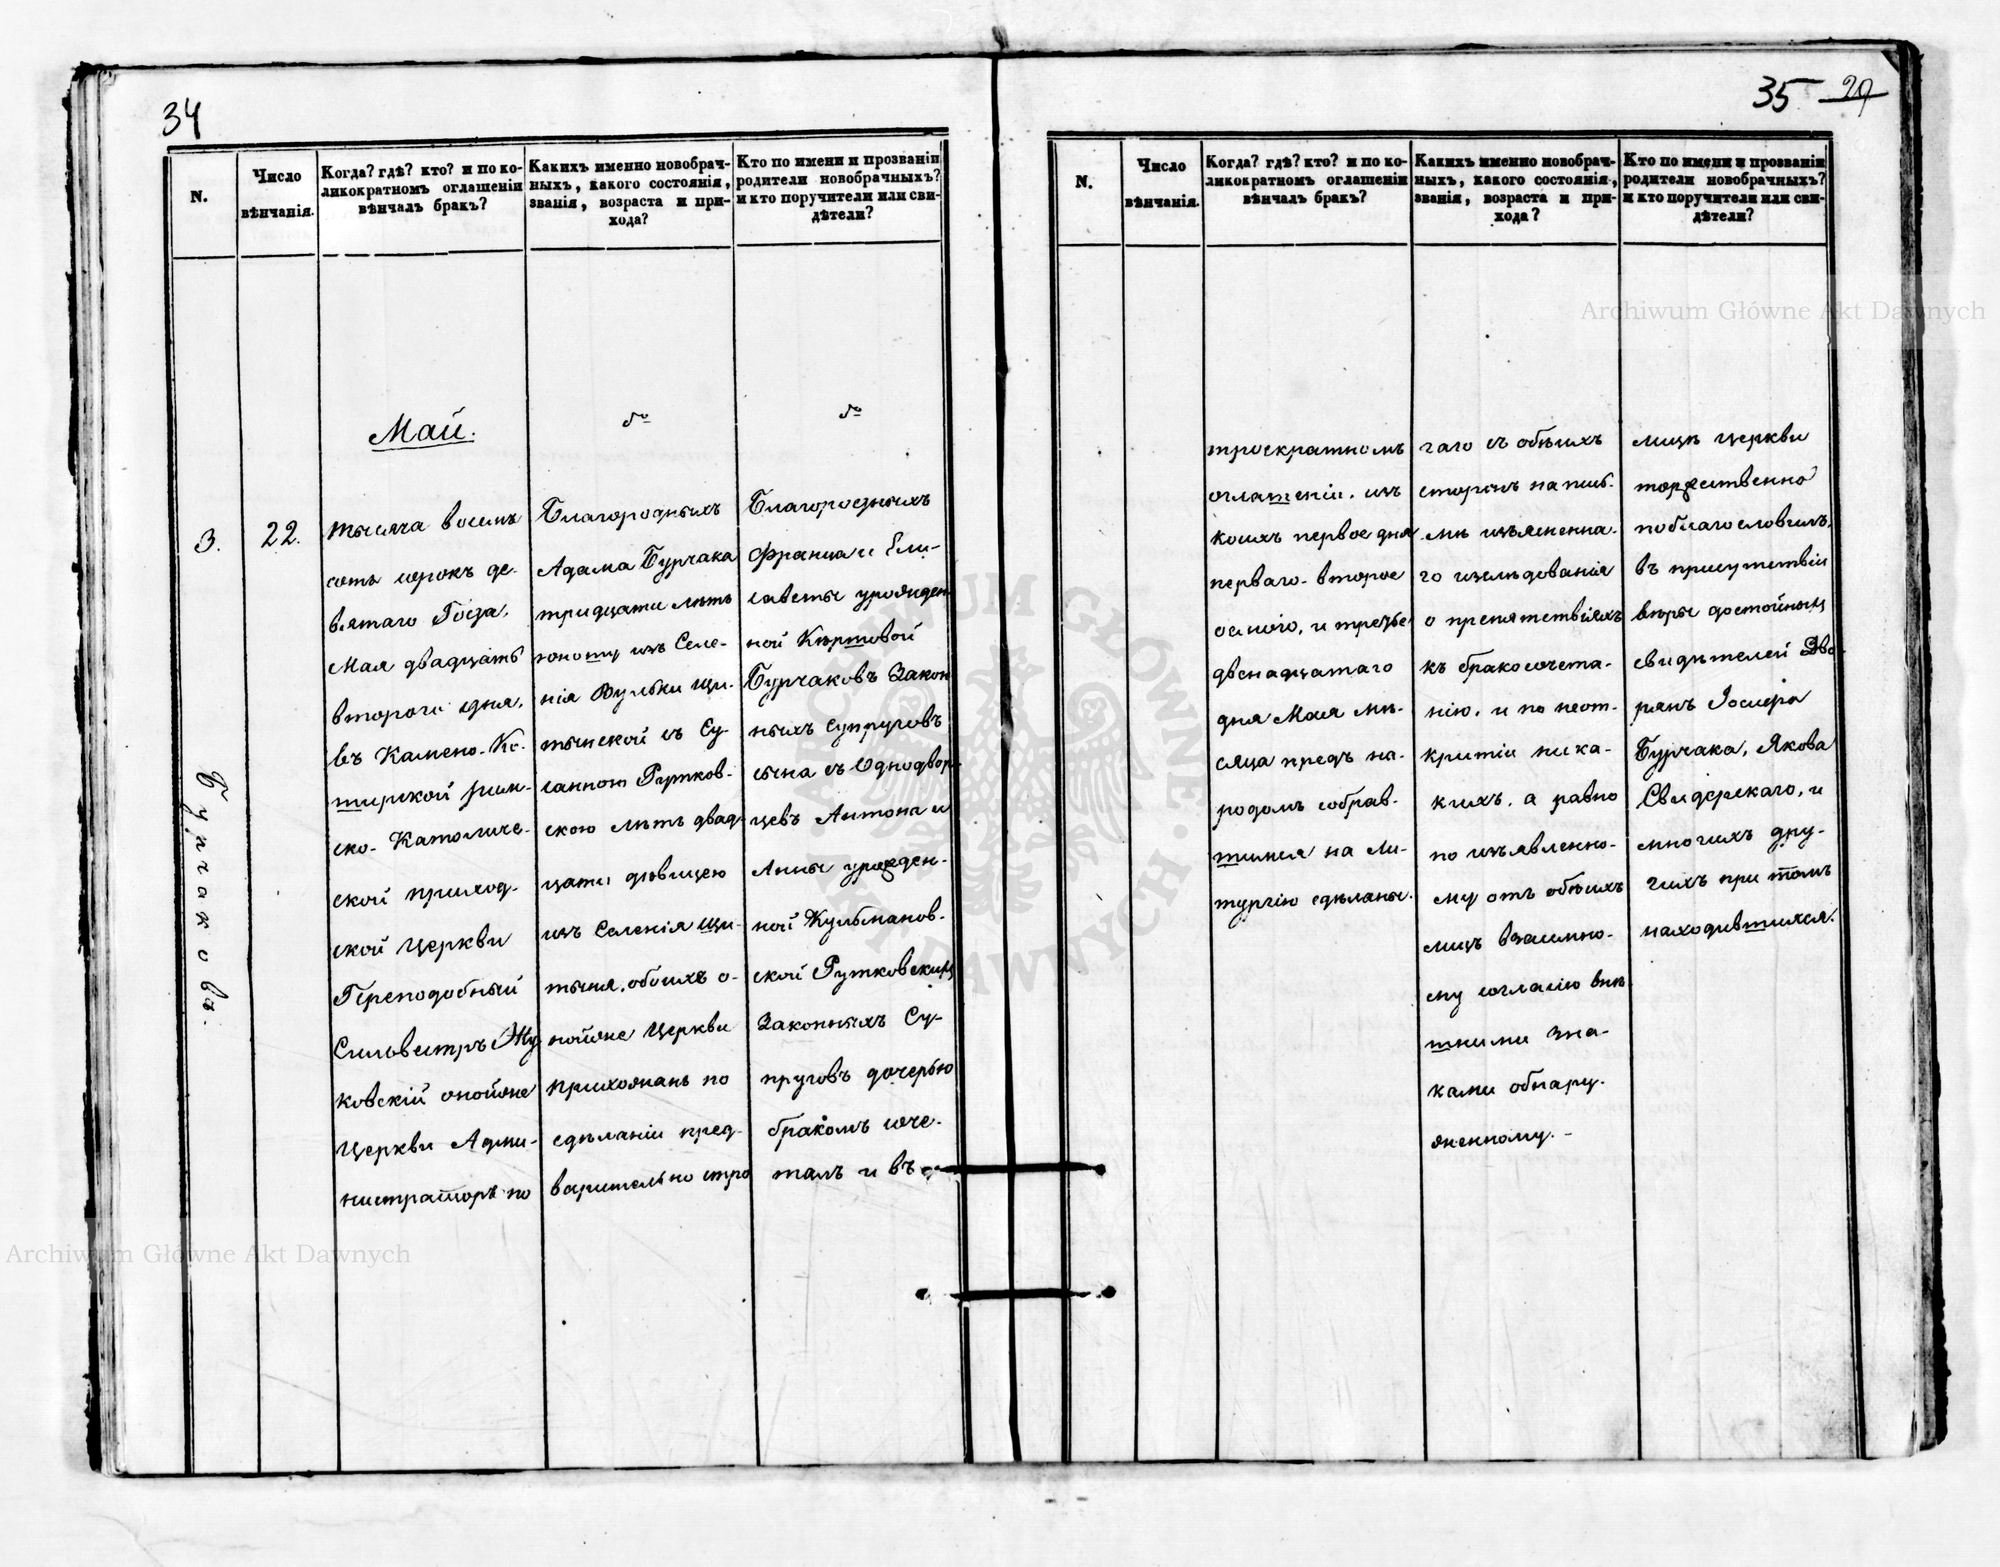 34
N.
Число
вѣнчанія.
Когда? гдѣ? кто? и по ко-
ликократномъ оглашеніи
вѣнчалъ бракъ?
Какихъ именно новобрач-
ныхъ, какого состоянія,
званія, возраста и при-
хода?
Кто по имени и прозванію
родители новобрачныхъ?
и кто поручители или сви-
дѣтели?
3.
Бурчаковъ.
22.
Май.
тысяча восемь
сотъ сорокъ де-
вятаго Года,
Мая двадцать
втораго дня,
въ Камено-Ко-
ширской рим-
ско-Католиче-
ской приход-
ской Церкви
Преподобный
Сильвестръ Жу
ковскій оной же
Церкви Адми-
нистраторъ по
Благородныхъ
Адама Бурчака
тридцати лѣтъ
юношу изъ Селе-
нія Вульки Щи-
тынской съ Су-
санною Рутков-
скою лѣтъ двад-
цати дѣвицею
изъ Селенія Щи-
тыня, обоихъ о-
ной же Церкви
прихожанъ по
сдѣланіи пред-
варительно стро
Благородныхъ
Франца и Ели-
саветы урожден
ной
Бурчаковъ Закон
ныхъ Супруговъ
сына съ Однодвор-
цевъ Антона и
Анны урожден-
ной Кульмановъ-
ской Рутковскихъ
Законныхъ Су-
пруговъ дочерью
бракомъ соче-
талъ и въ
35 29
N.
Число
вѣнчанія.
Когда? гдѣ? кто? и по ко-
ликократномъ оглашеніи
вѣнчалъ бракъ?
Какихъ именно новобрач-
ныхъ, какого состоянія,
званія, возраста и при-
хода?
Кто по имени и прозванію
родители новобрачныхъ?
и кто поручители или сви-
дѣтели?
троекратномъ
оглашеніи, изъ
коихъ первое дня
перваго, второе
осмого, и третье
двенадцатаго
дня Мая мѣ-
сяца предъ на-
родомъ собрав-
шимся на Ли-
тургію сдѣланы.
гаго съ обѣихъ
сторонъ на пись-
мѣ изъясненна-
го изслѣдованія
о препятствіяхъ
къ бракосочета-
нію, и по неот-
крытіи ника-
кихъ, а равно
по изъявленно-
му отъ обѣихъ
лицъ взаимно-
му согласію внѣ
шними зна-
ками обнару-
женному.-
лицѣ Церкви
торжественно
поблагословилъ,
въ присутствіи
вѣры достойныхъ
свидѣтелей Дво-
рянъ Іосифа
Бурчака, Якова
Свидерскаго, и
многихъ дру-
гихъ при томъ
находившихся.
Archiwum Główne Akt Dawnych
Archiwum Główne Akt Dawnych
ARCHIWUM GŁÓWNE AKT DAWNYCH